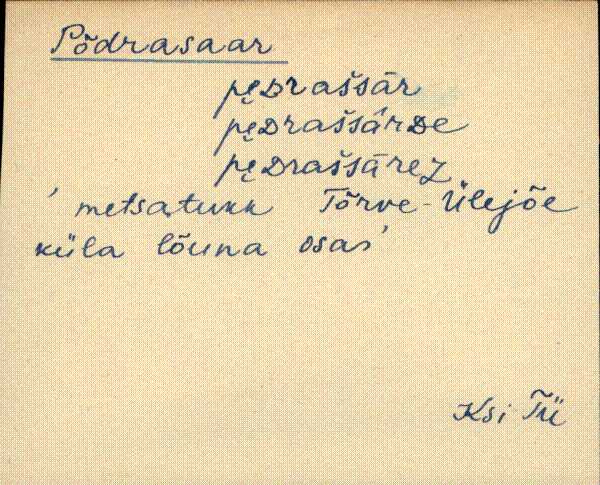 Põdrasaar
pe̮ᴅraššār
pe̮ᴅraššārᴅe
pe̮ᴅraššārez
' metsatukk Tõrve-Ülejõe
küla lõuna osas'
Ksi Tü